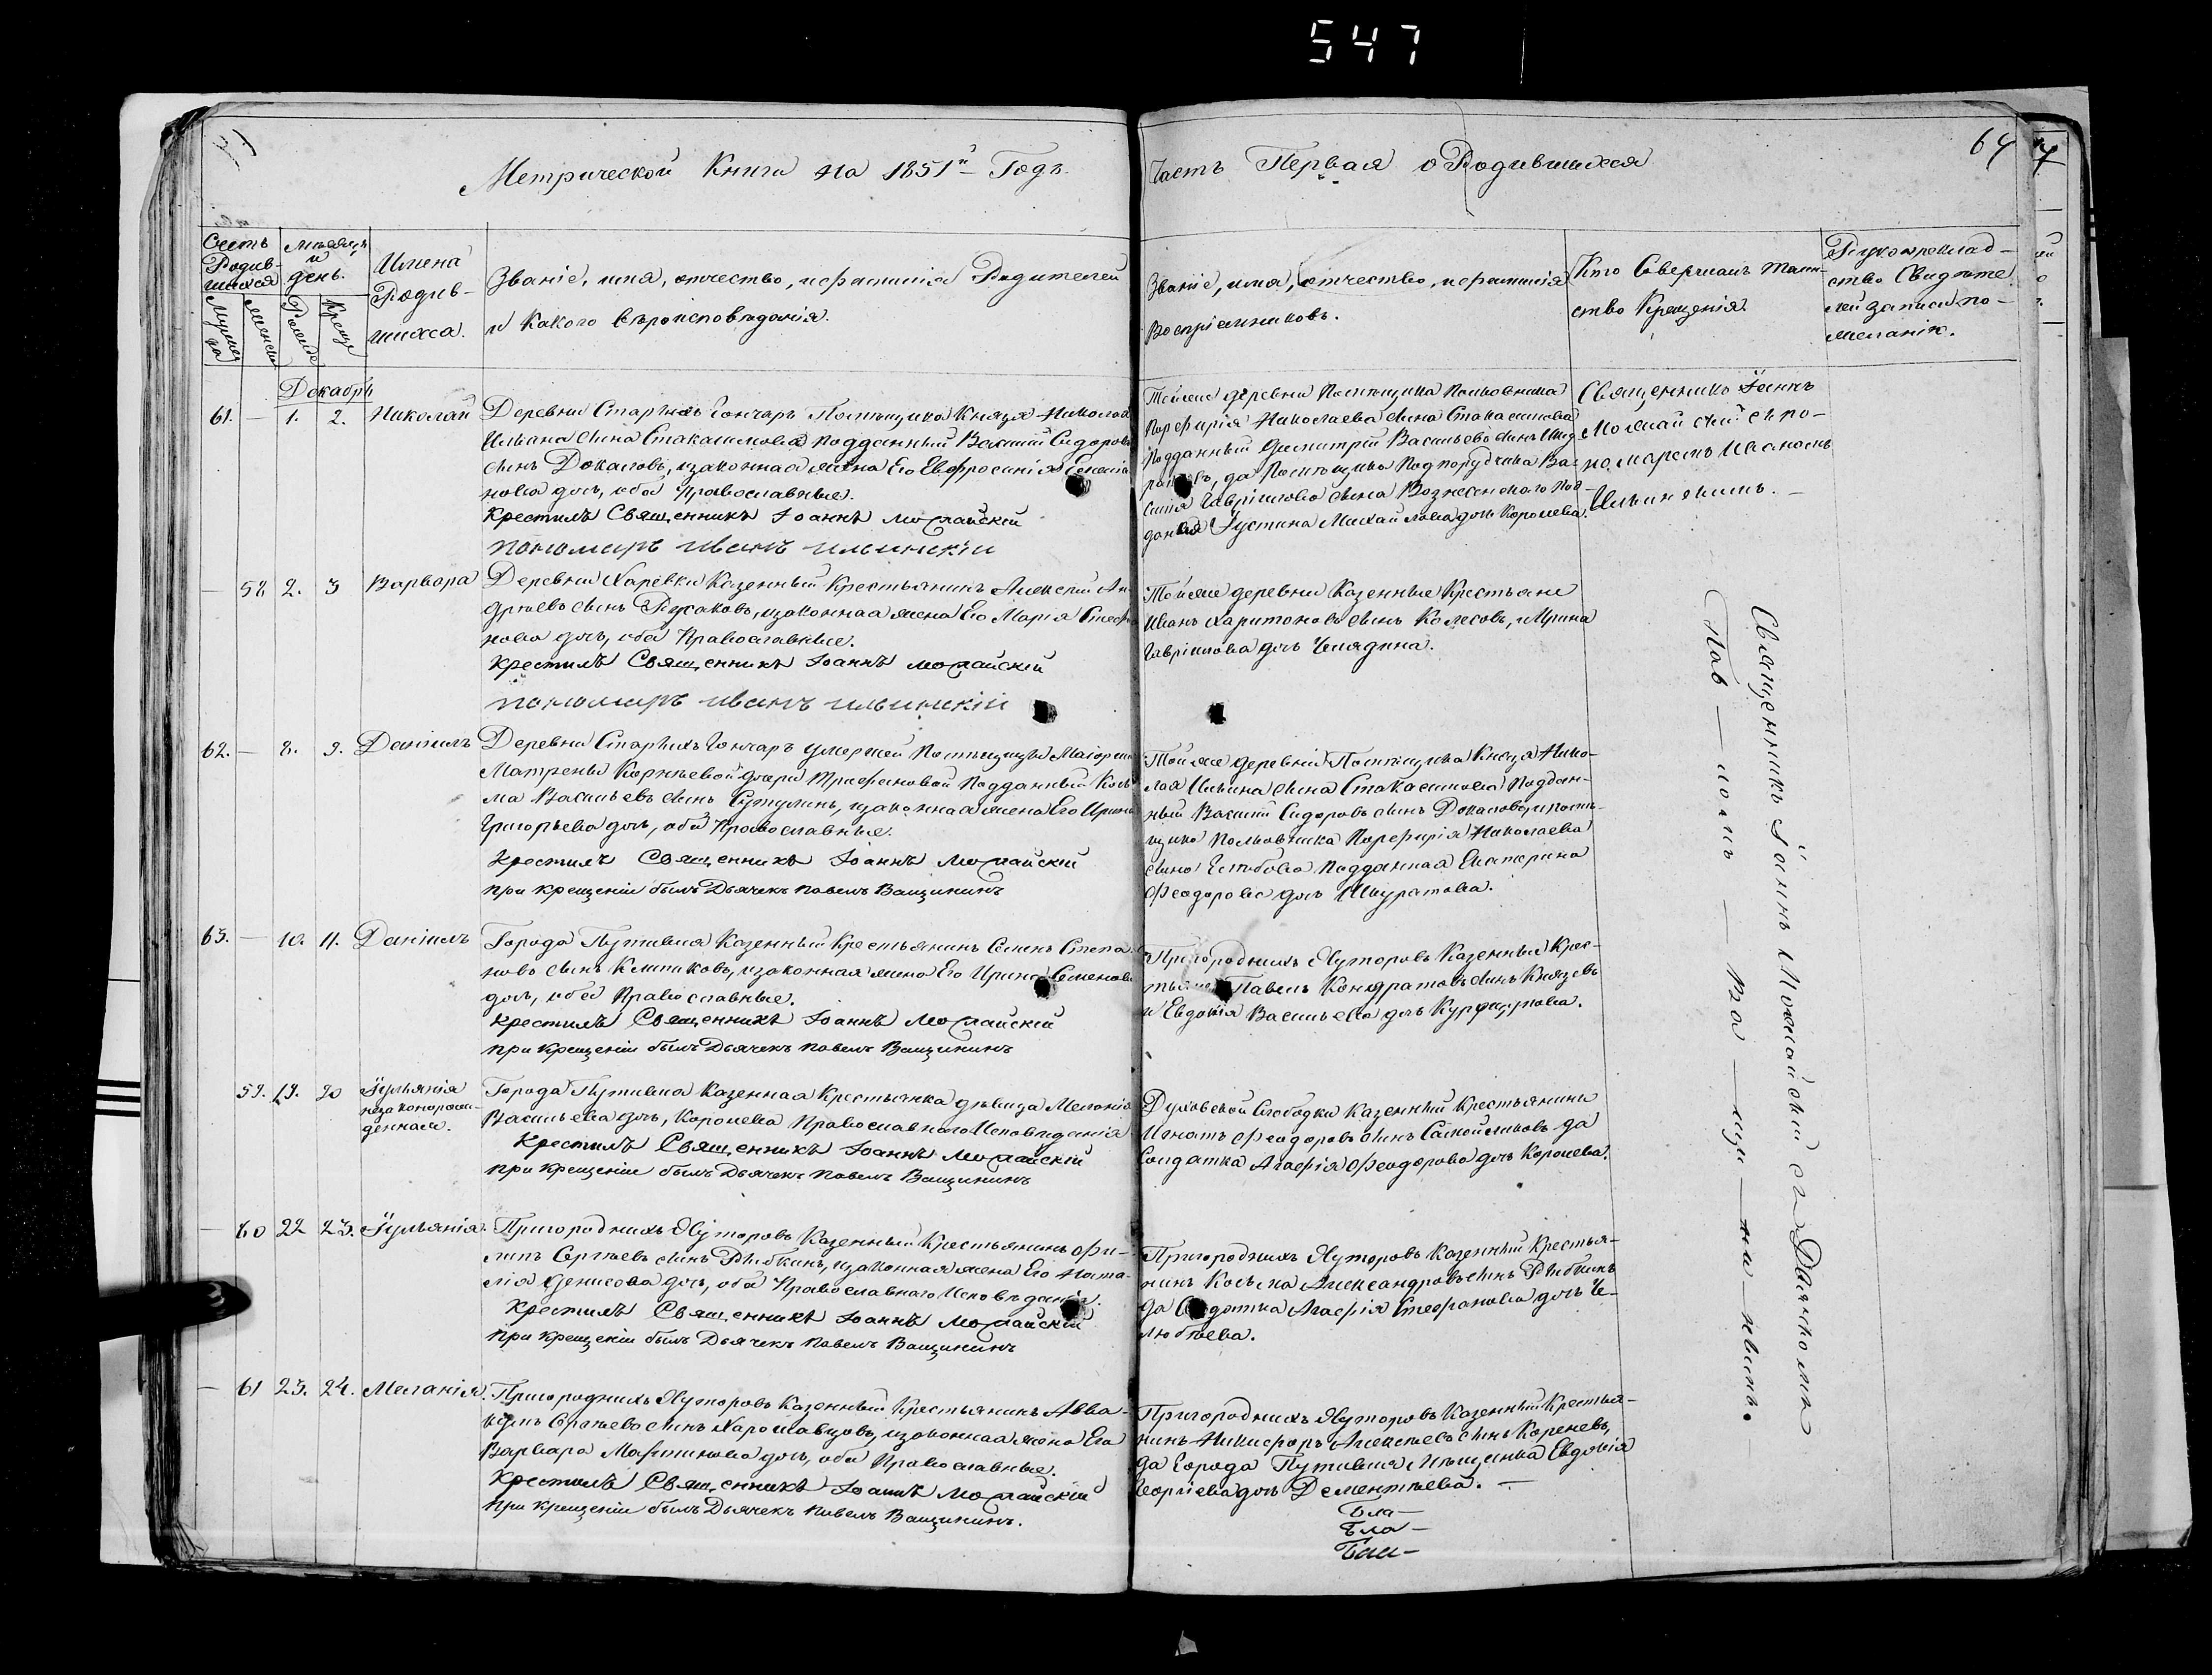 547
Метрической Книги на 1851й Годъ.
Часть Первая о Родившихся
64
Счетъ Родившихся
Мѣсяцъ и день.
Имена Родившихся.
Званіе, имя, отчество, и фамилія Родителей
и Какого вѣроисповѣданія.
Званіе, имя, отчество, и фамилія
Воспріемниковъ.
Кто Совершалъ таин-
ство Крещенія.
Рукоприклад-
ство Свидѣте
лей записи по-
желанію.
Декабрь
61. — 1. 2. Николай
Деревни Старыхъ Гончаръ Помѣщика Князя Николая
Ильина сына Стокасимова подданный Василій Сидоровъ
сынъ Докаловъ, и законная жена Его Евфросинія
нова дочь, оба Православные.
Крестилъ Священникъ Іоаннъ Можайскій
пономарь иванъ ильинскій
Той же деревни Помѣщика Полковника
Порфирія Николаева сына Стокасимова
подданный Димитрій Васильевъ сынъ
да Помѣщика Подпорудчика Ва-
силія Гавріилова сына Вознесенского под-
данная Іустина Михайлова дочь Королева.
Священникъ Іоаннъ
Можайскій съ по-
номаремъ Иваномъ
Ильинскимъ. —
— 58 2. 3 Варвара
Деревни Харевки Казенный Крестьянинъ Алексій Ан
дреевъ сынъ Русаковъ, и законная жена Его Марія Стефа
нова дочь, оба Православные.
Крестилъ Священникъ Іоаннъ Можайскій
пономарь иванъ ильинскій
Той же деревни Казенные Крестьяне
Иванъ Харитоновъ сынъ Колесовъ, и Ирина
Гавріилова дочь Челядина.
62. — 8. 9. Даніилъ
Деревни Старыхъ Гончаръ умершей Помѣщицы Маіорши
Матрены Корнѣевой дочери Трифановой Подданный Козь
ма Васильевъ сынъ Сутулинъ, и законная жена Его Ирина
Григорьева дочь, оба Православные.
Крестилъ Священникъ Іоаннъ Можайскій
при крещеніи былъ Дьячекъ Павелъ Ващининъ
Той же деревни Помѣщика Князя Нико-
лая Ильина сына Стокасимова Поддан-
ный Василій Сидоровъ сынъ Докаловъ, и помѣ-
щика Полковника Порфирія Николаева
сына подданная Екатерина
Феодорова дочь Шкуратова.
63. — 10. 11. Даніилъ
Города Путивля Казенный Крестьянинъ Степа
новъ сынъ Клитиковъ, и законная жена Его Ирина Семенова
дочь, оба Православные.
Крестилъ Священникъ Іоаннъ Можайскій
при крещеніи былъ Дьячекъ Павелъ Ващининъ
Пригородныхъ Хуторовъ Казенные Крес-
тьяне Павелъ Кондратовъ сынъ Князевъ
и Евдокія Васильева дочь
59. 19. 20 Іуліянія
незаконорож-
денная.
Города Путивля Казенная Крестьянка дѣвица Меланія
Васильева дочь, Королева Православного Исповѣданія
Крестилъ Священникъ Іоаннъ Можайскій
при крещеніи былъ Дьячекъ Павелъ Ващининъ
Духовской Слободки Казенный Крестьянинъ
Игнатъ Феодоровъ сынъ Самойликовъ да
Солдатка Агафія Феодорова дочь Королева.
— 60 22 23. Іуліянія.
Пригородныхъ Хуторовъ Казенный Крестьянинъ Фи-
липъ Сергѣевъ сынъ Рыбкинъ, и законная жена Его Ната-
лія Денисова дочь, оба Православного Исповѣданія.
Крестилъ Священникъ Іоаннъ Можайскій
при крещеніи былъ Дьячекъ Павелъ Ващининъ
Пригородныхъ Хуторовъ Казенный Крестья-
нинъ Косьма Александровъ сынъ Рыбкинъ
да Солдатка Агафія Стефанова дочь Че-
любѣева.
— 61 23. 24. Меланія.
Пригородныхъ Хуторовъ Казенный Крестьянинъ Авва-
кумъ Сергѣевъ сынъ Харославцовъ, и законная жена Его
Варвара Мартинова дочь, оба Православные.
Крестилъ Священникъ Іоаннъ Можайскій
при крещеніи былъ Дьячекъ Павелъ Ващининъ.
Пригородныхъ Хуторовъ Казенный Крестья-
нинъ Никифоръ Алексѣевъ сынъ Кореневъ,
да Города Путивля Мѣщанка Евдокія
Георгіева дочь Дементьева. —
Священникъ Іоаннъ Можайскій съ Дьячкомъ
Пав — ломъ — Ва — щи — ни — нымъ.